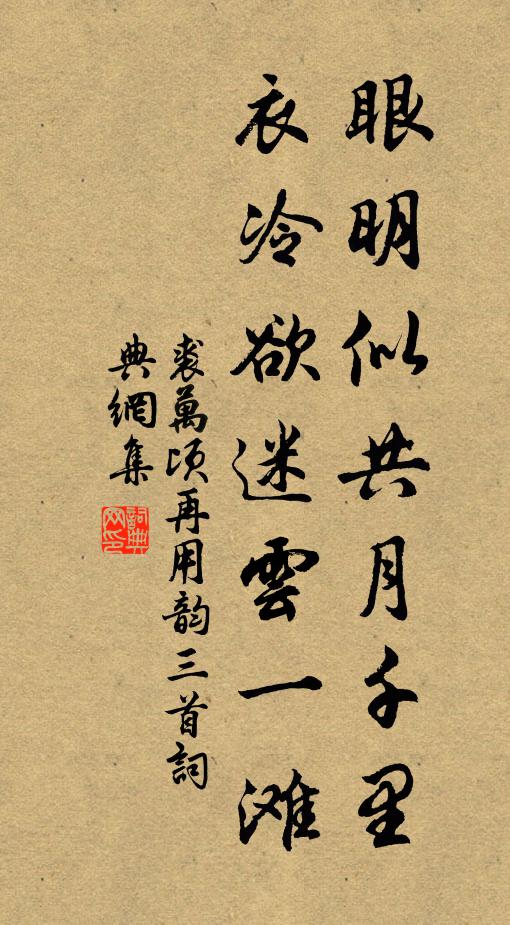 眼明似共月千里
衣冷欲迷雲一滩
裘萬頃再用韵三首詞
典網集
詞典
网印